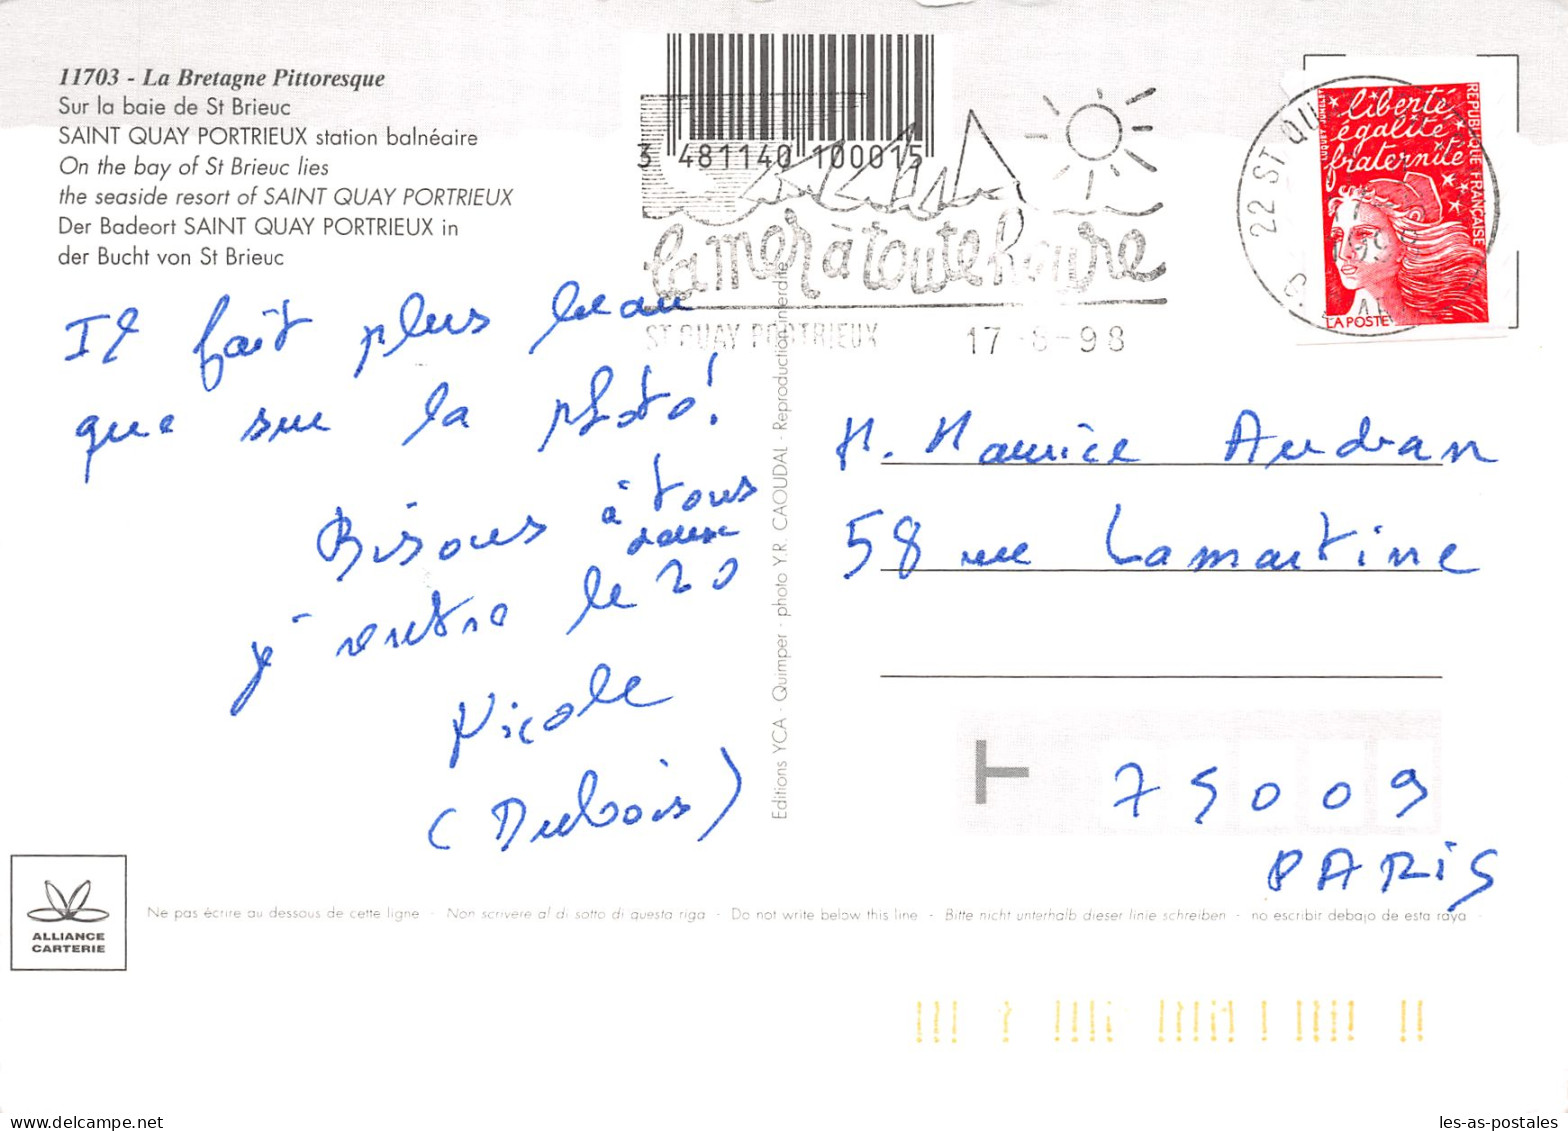 11703 - La Bretagne Pittoresque
Sur la baie de St Brieuc
SAINT QUAY PORTRIEUX station balnéaire
On the bay of St Brieuc lies
the seaside resort of SAINT QUAY PORTRIEUX
Der Badeort SAINT QUAY PORTRIEUX in
der Bucht von St Brieuc
3 481140 100015
la mer à toute heure
ST QUAY PORTRIEUX 17-8-98
22 ST QU
liberté
égalité
fraternité
RÉPUBLIQUE FRANÇAISE
LA POSTE
Il fait plus beau
que sur la photo!
Bisous à tous
je rentre le 20
Nicole
(Dubois)
Editions YCA - Quimper - photo Y.R. CAOUDAL - Reproduction interdite
M. Maurice Audran
58 rue Lamartine
T 75009
PARIS
ALLIANCE
CARTERIE
Ne pas écrire au dessous de cette ligne - Non scrivere al di sotto di questa riga - Do not write below this line - Bitte nicht unterhalb dieser linie schreiben - no escribir debajo de esta raya -
les-as-postales